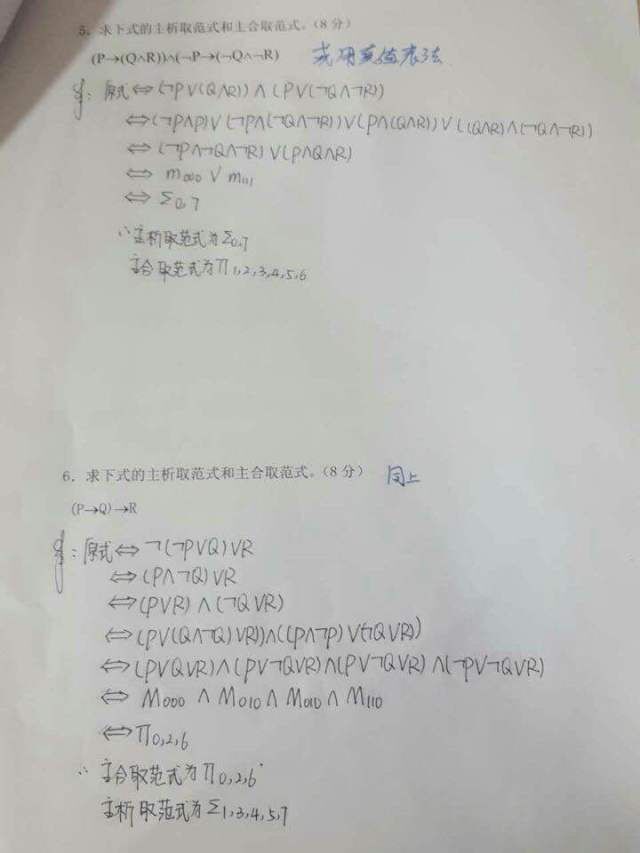 5. 求下式的主析取范式和主合取范式。(8 分)
(P→(Q∧R))∧(¬P→(¬Q∧¬R) 或用真值表法
解: 原式⇔(¬P∨(Q∧R))∧(P∨(¬Q∧¬R))
⇔(¬P∧P)∨(¬P∧(¬Q∧¬R))∨(P∧(Q∧R))∨((Q∧R)∧(¬Q∧¬R))
⇔(¬P∧¬Q∧¬R)∨(P∧Q∧R)
⇔ m000 ∨ m111
⇔ Σ0,7
∴主析取范式为Σ0,7
主合取范式为∏1,2,3,4,5,6
6. 求下式的主析取范式和主合取范式。(8 分) 同上
(P→Q)→R
解: 原式⇔¬(¬P∨Q)∨R
⇔(P∧¬Q)∨R
⇔(P∨R)∧(¬Q∨R)
⇔(P∨(Q∧¬Q)∨R))∧((P∧¬P)∨(¬Q∨R))
⇔(P∨Q∨R)∧(P∨¬Q∨R)∧(P∨¬Q∨R)∧(¬P∨¬Q∨R)
⇔ M000 ∧ M010 ∧ M010 ∧ M110
⇔∏0,2,6
∴ 主合取范式为∏0,2,6
主析取范式为Σ1,3,4,5,7